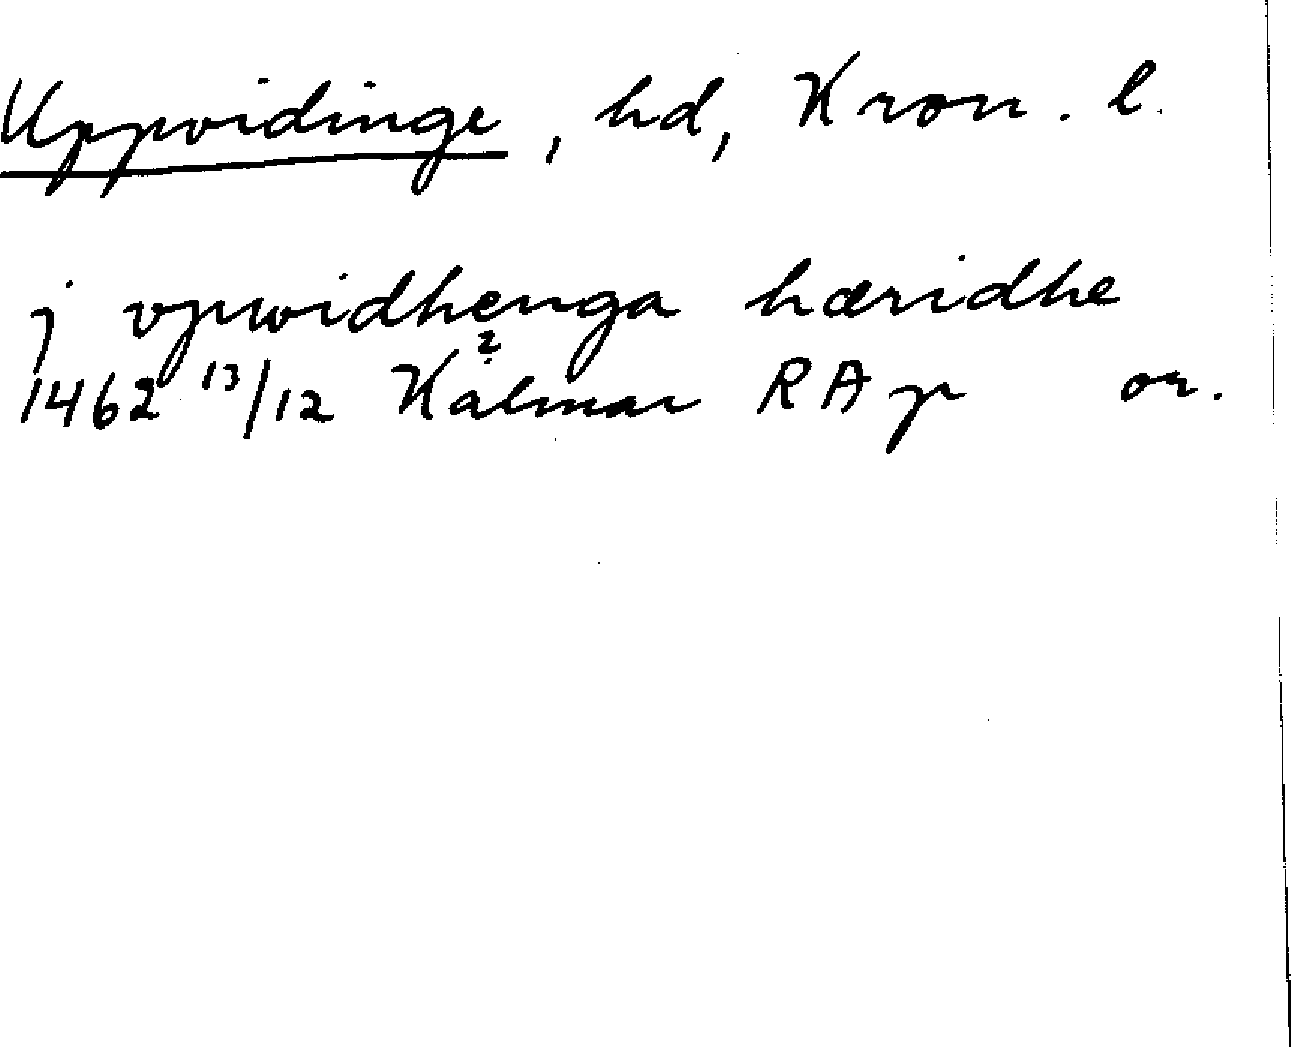 Uppvidinge, hd, Kron. l.
j vpwidhenga hæridhe
?
1462 13/12 Kalmar RAp or.